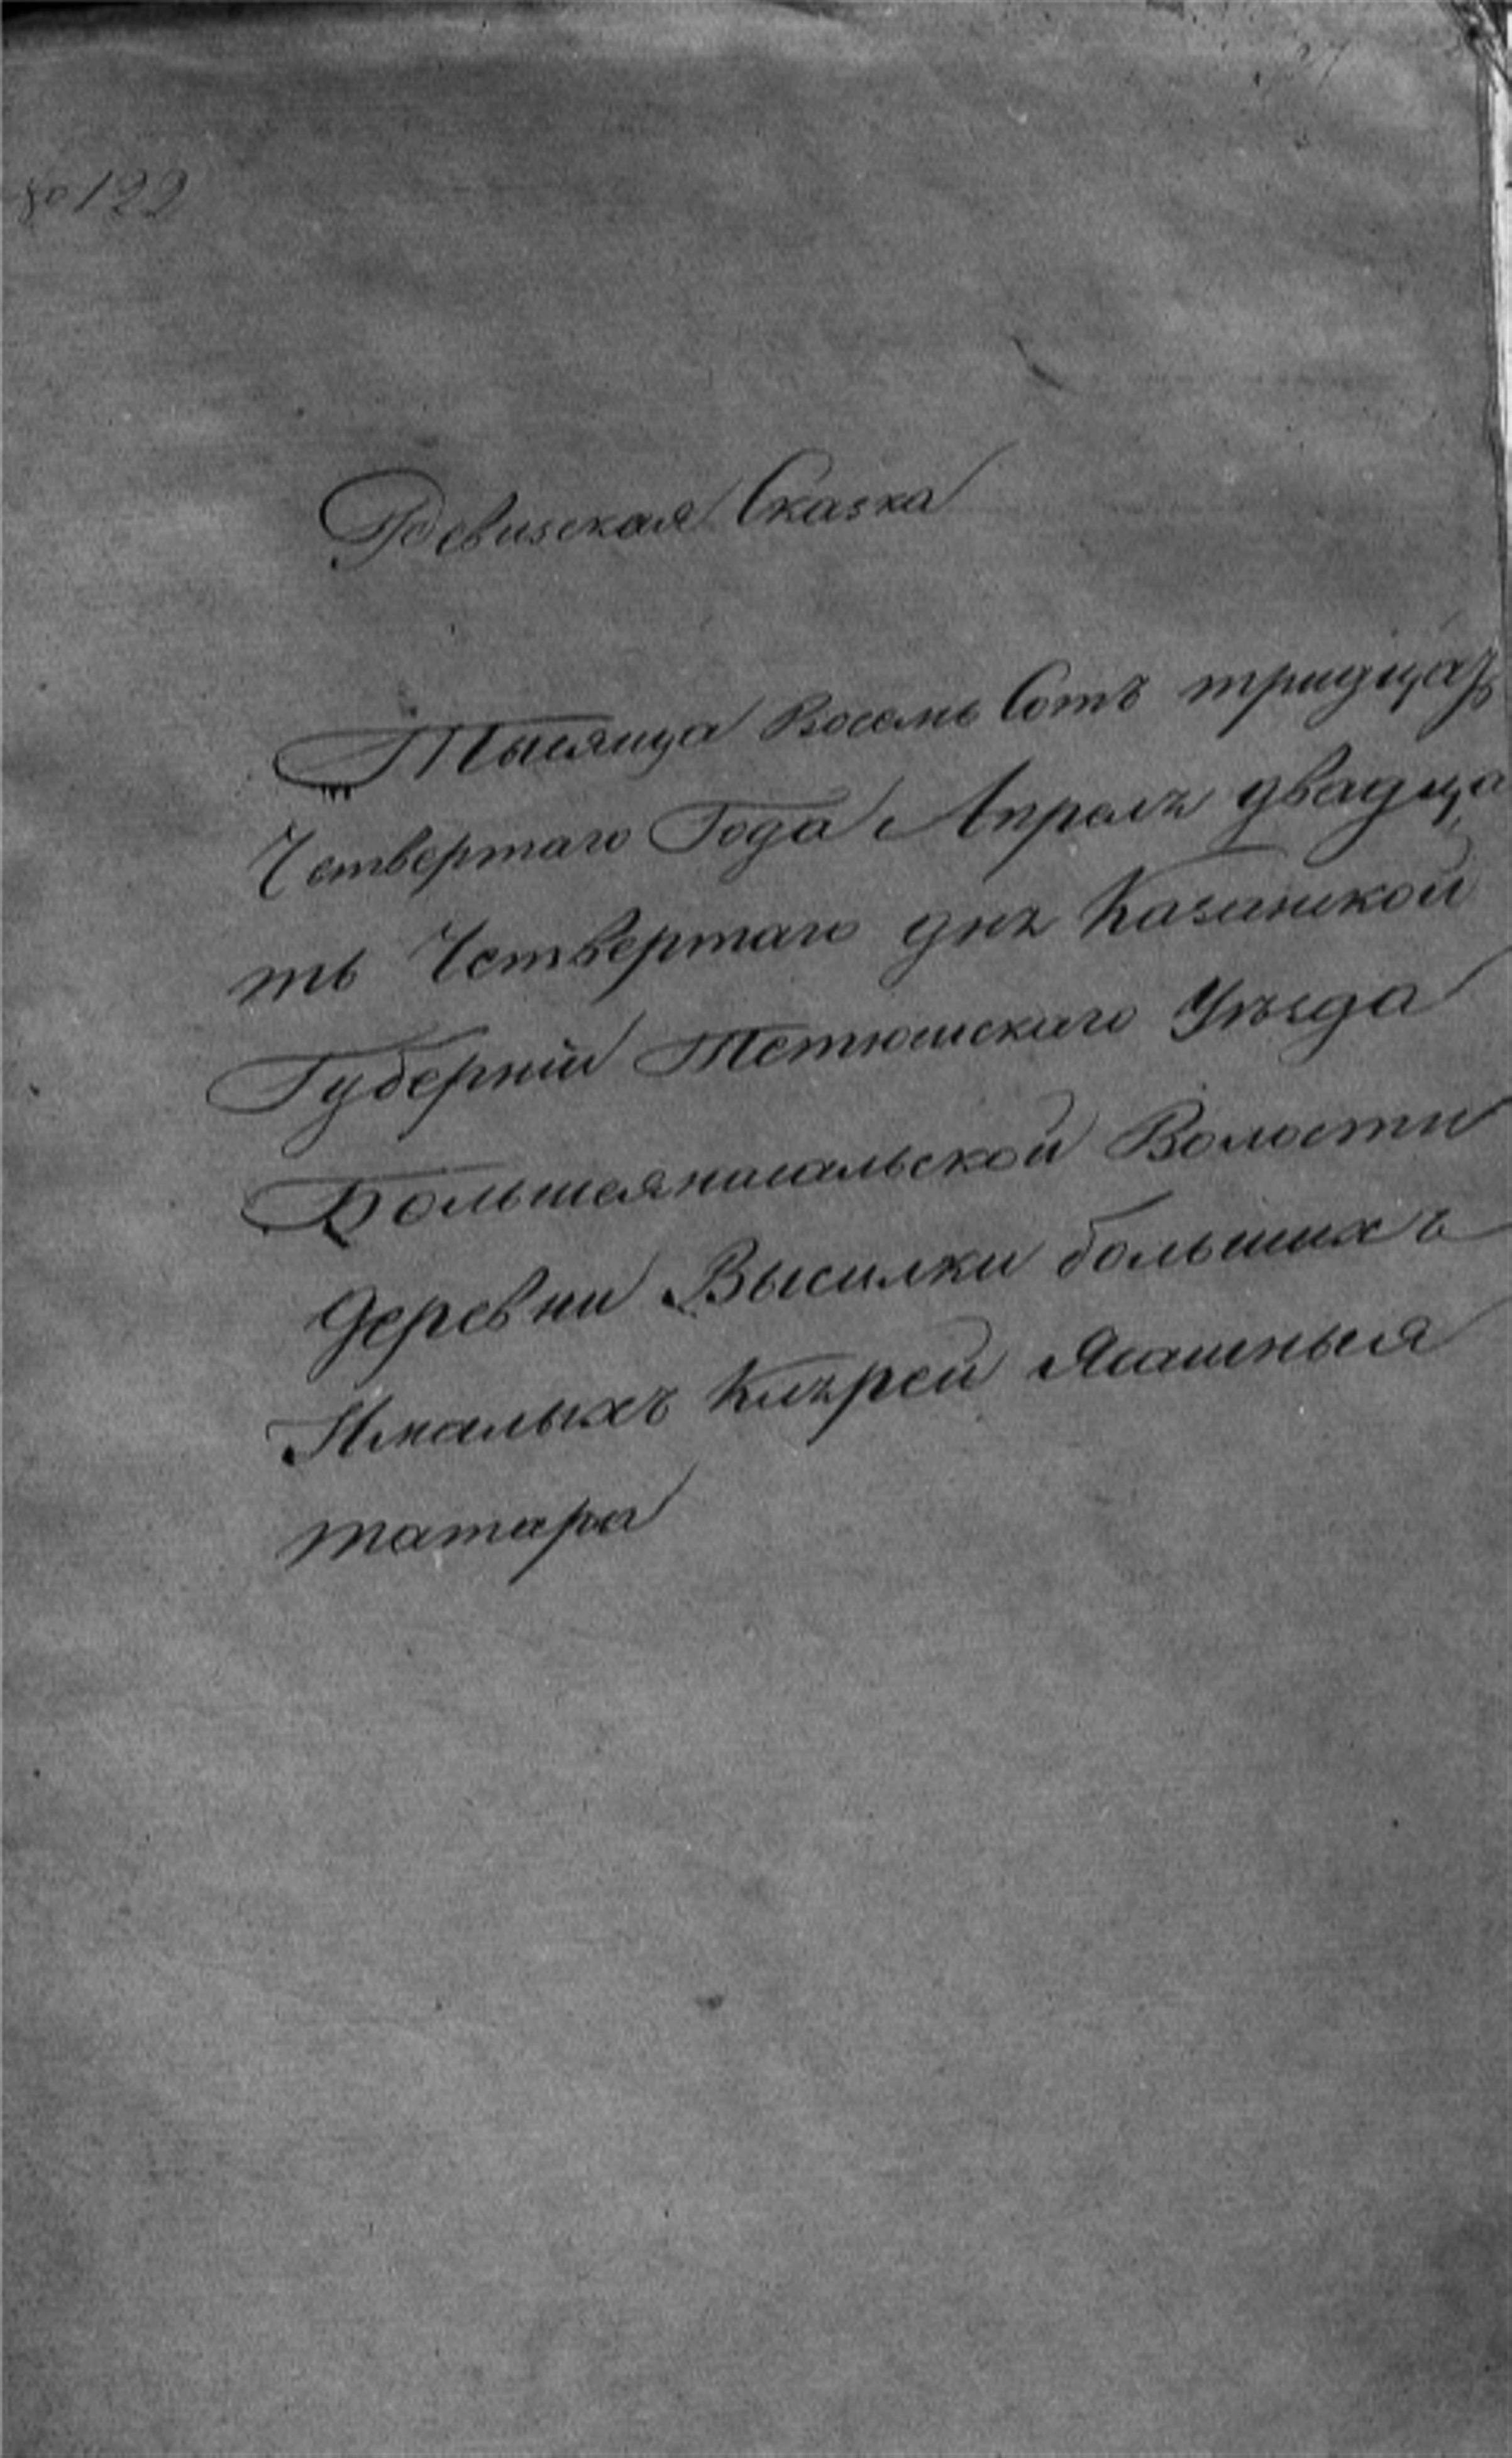 № 122
Ревизская Сказка
Тысяща Восемь Сотъ тридцать
Четвертаго Года Апреля двадца
ть Четвертаго дня Казанской
Губерніи Тетюшскаго Уѣзда
Большеяникальской Волости
деревни Высилки большихъ
Ималыхъ Кляреи Ясашныя
татара